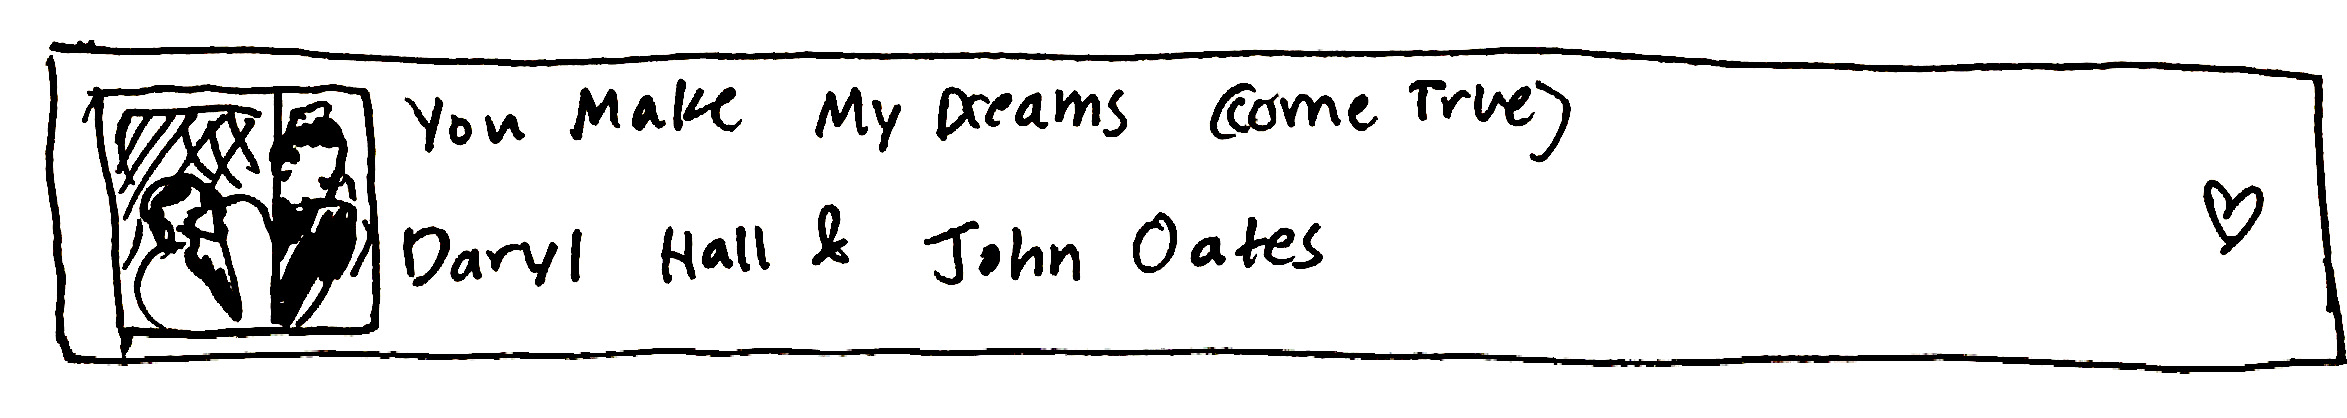 You Make My Dreams (Come True)
Daryl Hall & John Oates